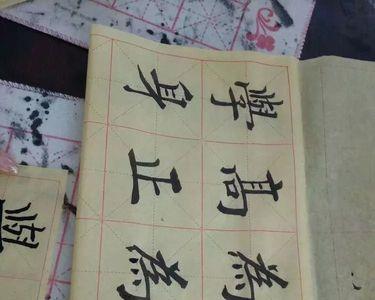 學高為
身正為